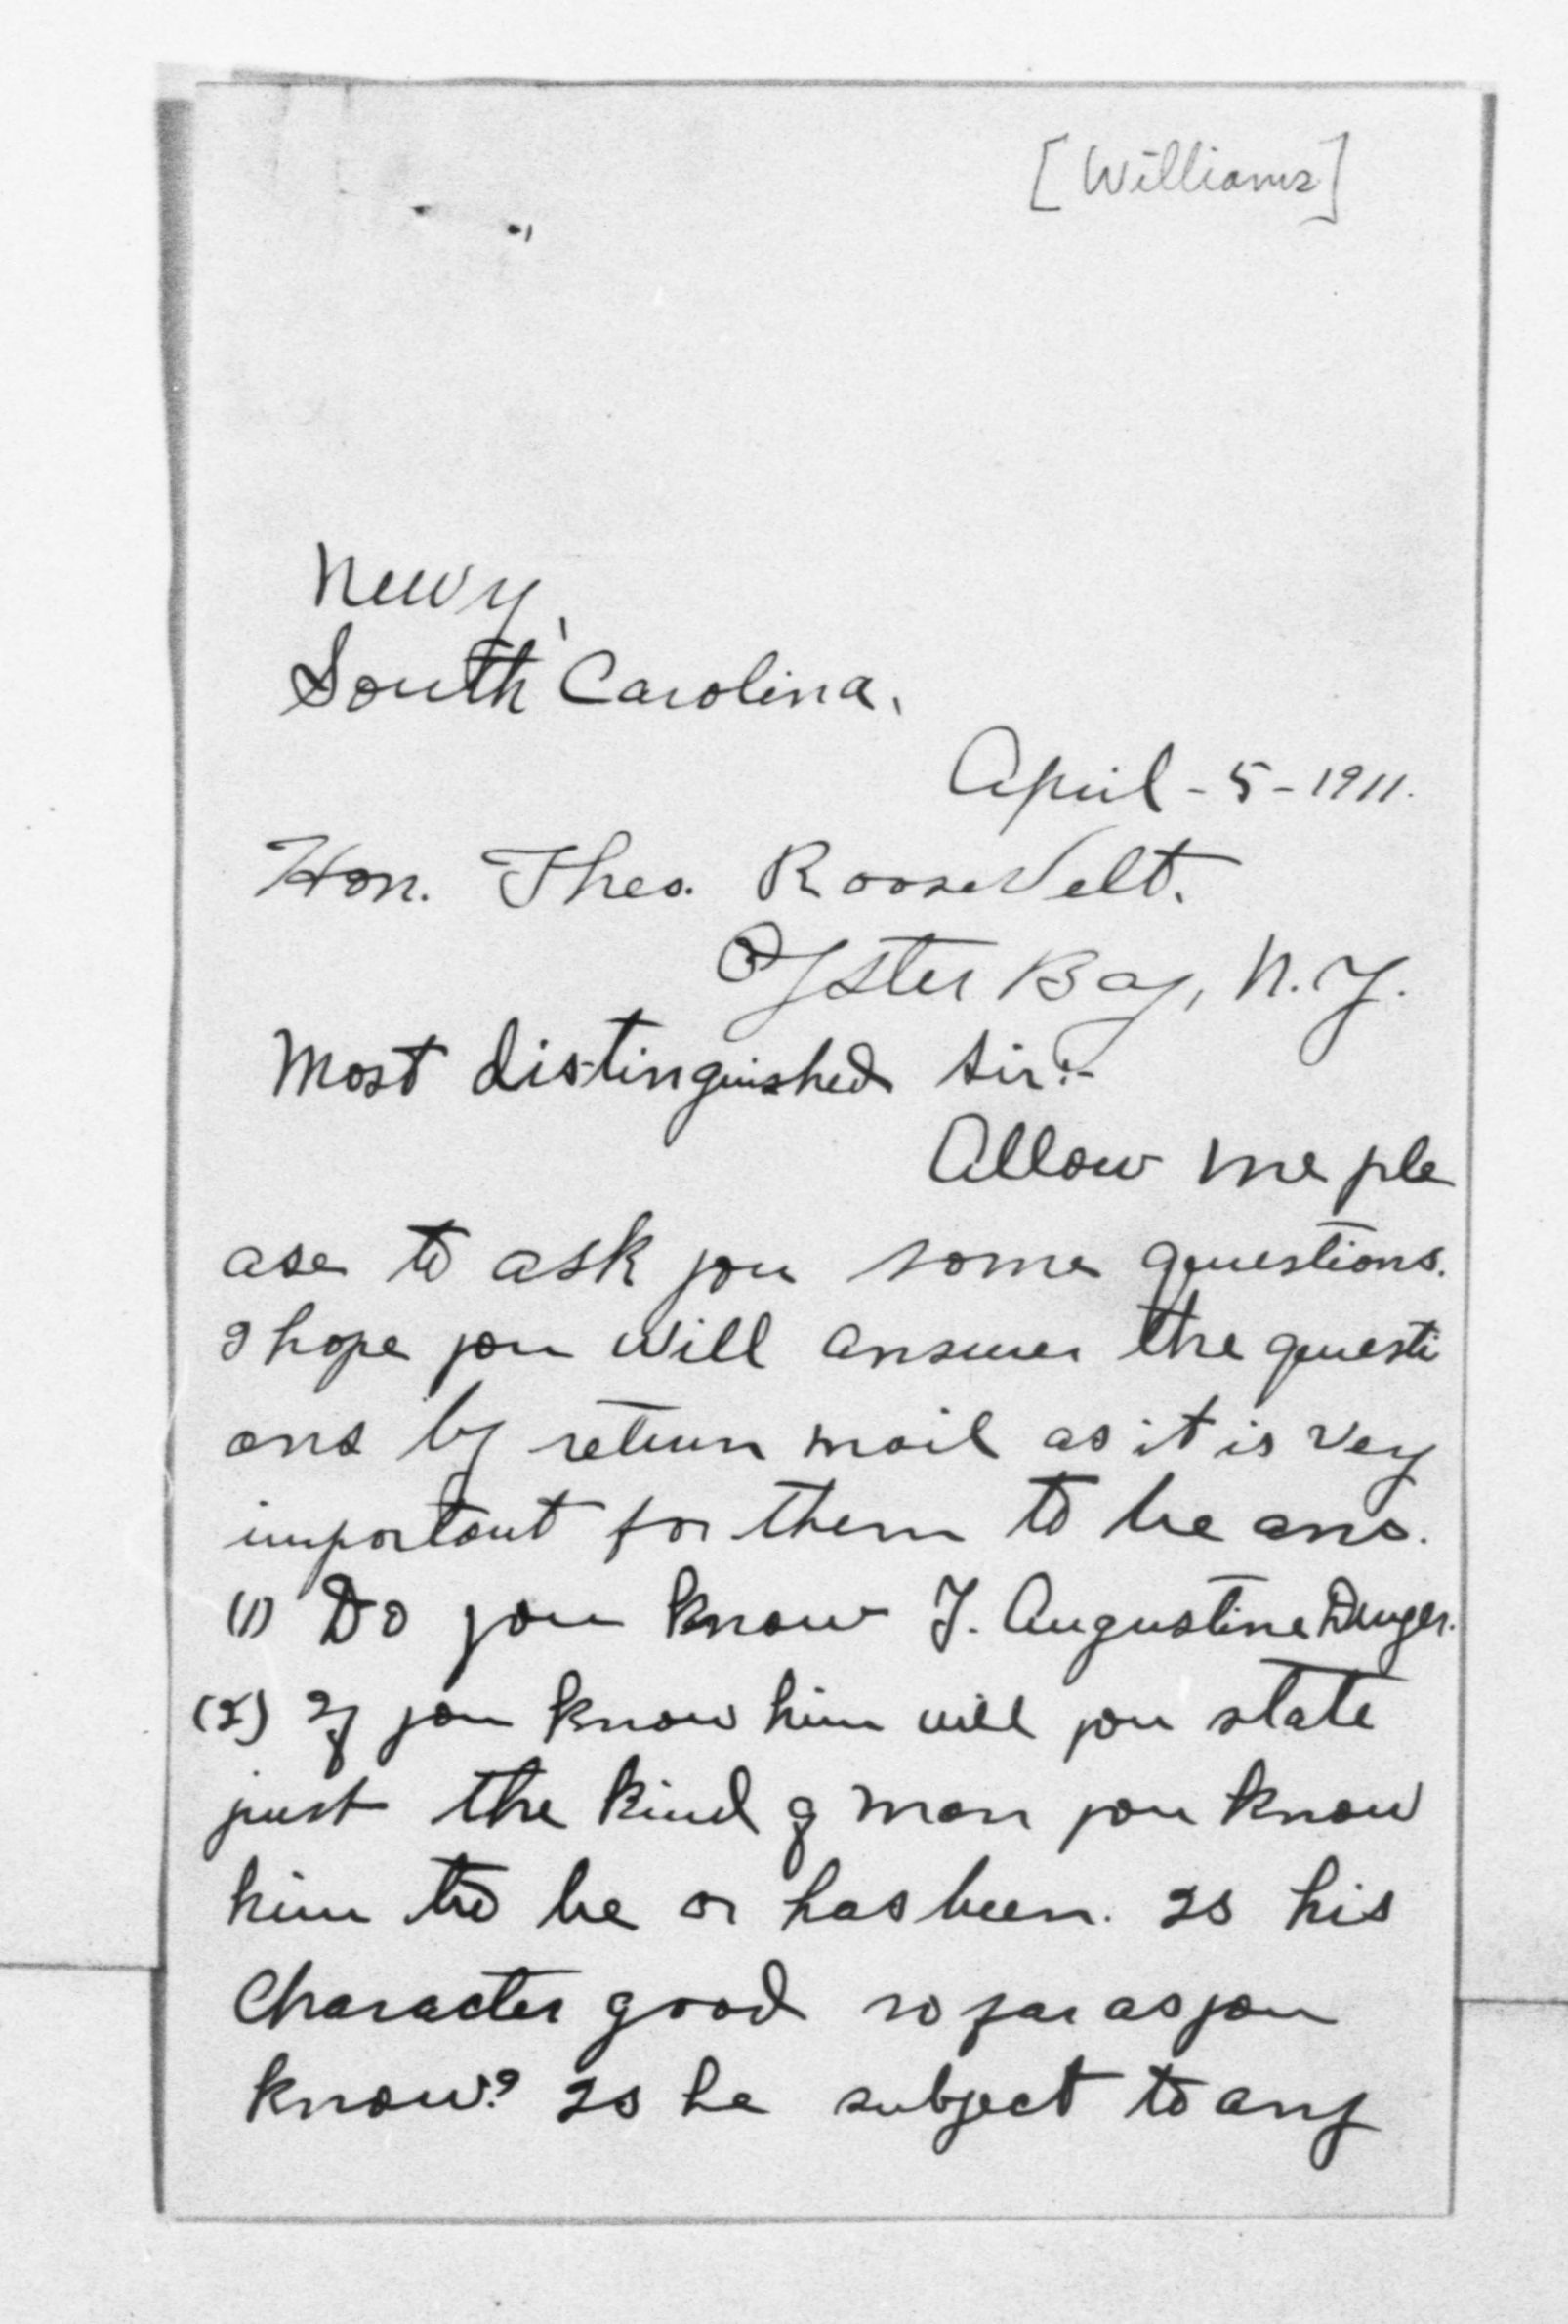 [Williams]
Newry,
South Carolina.
April - 5 - 1911.
Hon. Theo. Roosevelt.
Oyster Bay, N.Y.
Most distinguished Sir:-
Allow me ple
ase to ask you some questions.
I hope you will answer the questi
ons by return mail as it is very
important for them to be ans.
(1) Do you know J. Augustine
(2) If you know him will you state
just the kind of man you know
him to be or has been. Is his
Character good so far as you
know? Is he subject to any